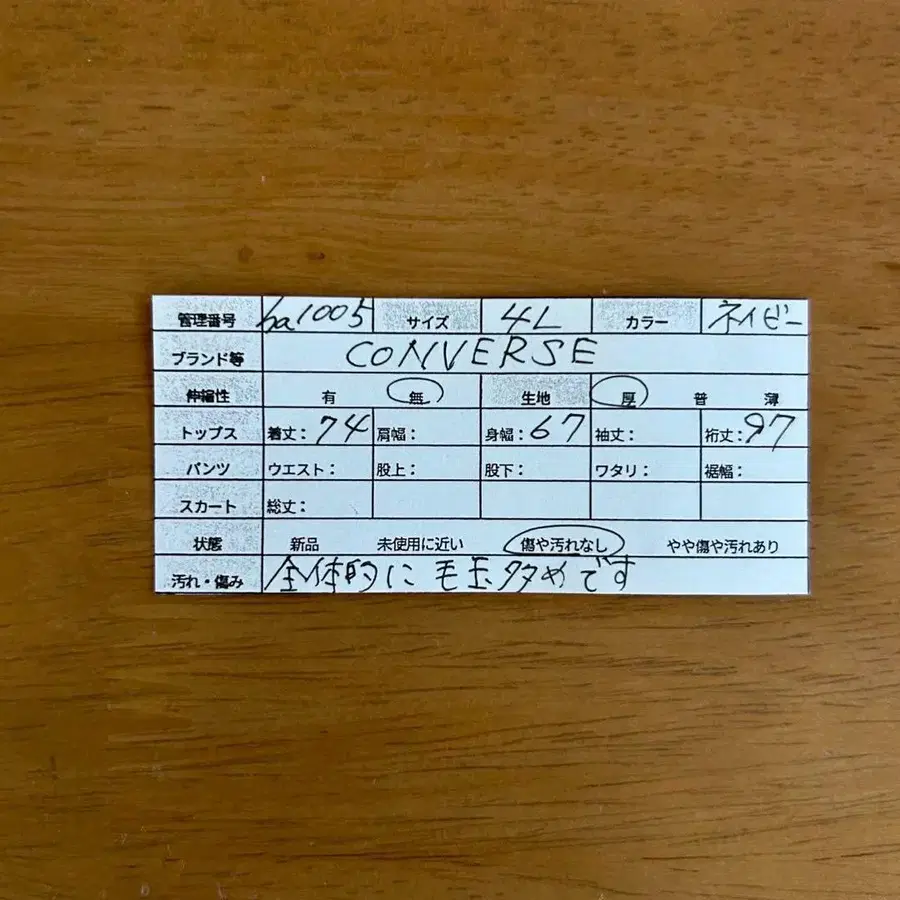 管理番号 ha1005 サイズ 4L カラー ネイビー
ブランド等 CONVERSE
伸縮性 有 無 生地 厚 普 薄
トップス 着丈：74 肩幅： 身幅：67 袖丈： 裄丈：97
パンツ ウエスト： 股上： 股下： ワタリ： 裾幅：
スカート 総丈：
状態 新品 未使用に近い 傷や汚れなし やや傷や汚れあり
汚れ・傷み 全体的に毛玉多めです